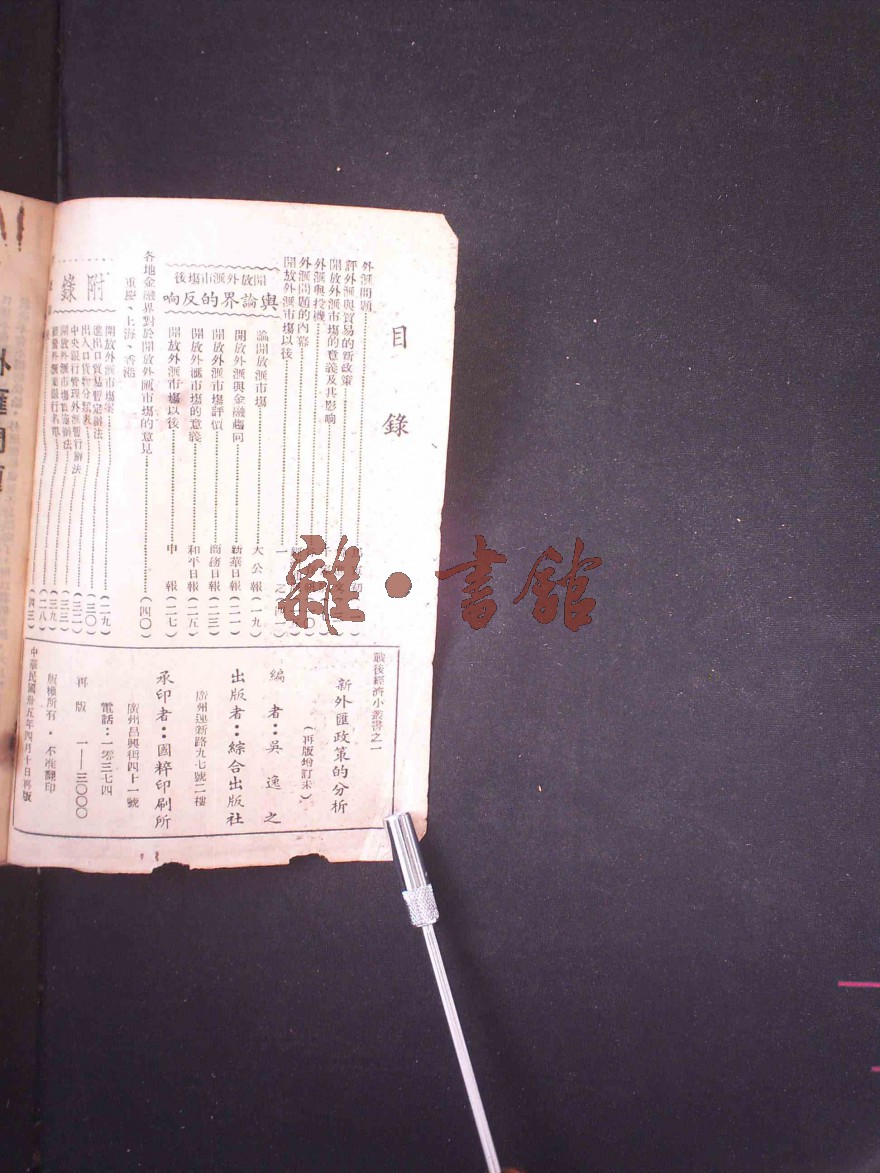 目錄
外滙問題
評外滙與貿易的新政策
開放外滙市塲的意義及其影响
外滙與投機
外滙問題的內幕
開放外滙市塲以後 一之
開放外滙市塲後
輿論界的反响
論開放滙市塲 大公報(一九)
開放外滙與金融趨向 新華日報(二一)
開放外滙市塲評價 商務日報(二三)
開放外滙市塲的意義 和平日報(二五)
開放外滙市塲以後 申報(二七)
各地金融界對於開放外匯市塲的意見 (四〇)
重慶、上海、香港
附錄
開放外滙市塲案 (二九)
進出口貿易暫定辦法 (三〇)
出入口貨物分類表 (三一)
中央銀行管理外滙暫行辦法 (三二)
開放外滙市塲 辦法 (三三)
外滙 銀行名單
(三九)
(二八)
(四三)
戰後經濟小叢書之一
新外匯政策的分析
(再版增訂本)
編者:吳逸之
出版者:綜合出版社
廣州連新路九七號二樓
承印者:國粹印刷所
廣州昌興街四十一號
電話:一零三七四
再版 一——三〇〇〇
版權所有·不准翻印
中華民國卅五年四月十日再版
雜·書館